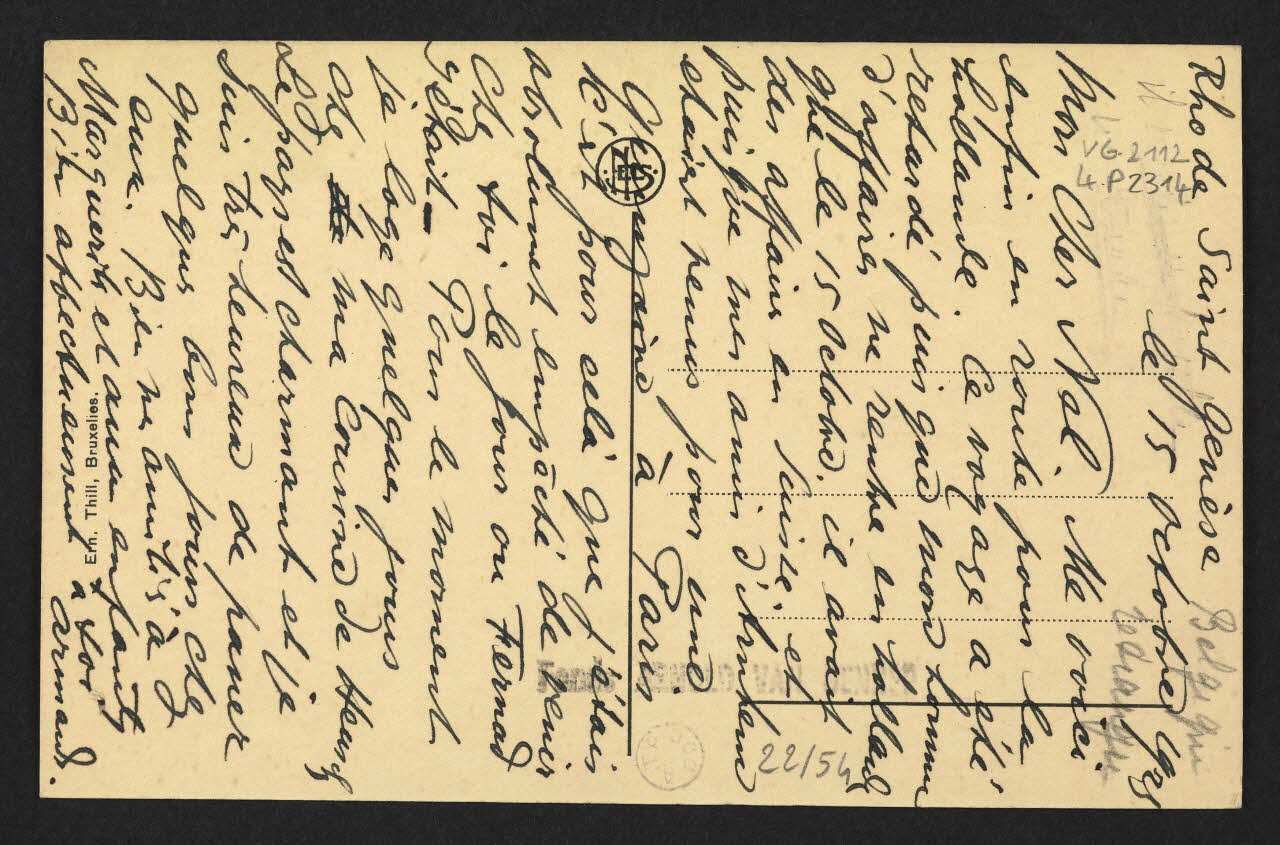 Rhode Saint Genèse
le 15 octobre 1925
Mon Cher Nal. Me voici
enfin en route pour la
hollande. Ce voyage a été
retardé puisque mon homme
d'affaires ne rentre en hollande
que le 15 octobre. il avait
des affaires en Suisse et
puisque mes amis d'Arnhem
étaient venus pour une
quinzaine à Paris
C'est pour cela que j'étais
absolument empêché de venir
che toi le jour où Fernad
y était. Pour le moment
je loge quelques jours
che ma Cousine de Heusch
Le pays est charmant et je
suis très heureux de passer
quelques bons jours che
eux. Bien mes amitiés à
Marguerite et aux enfants
Bien affectueusement à toi
Armand.
VG-2112
4-P2314
Belgique
22/54
Fonds ARNOLD VAN GENNEP
Ern. Thill, Bruxelles.
NELS